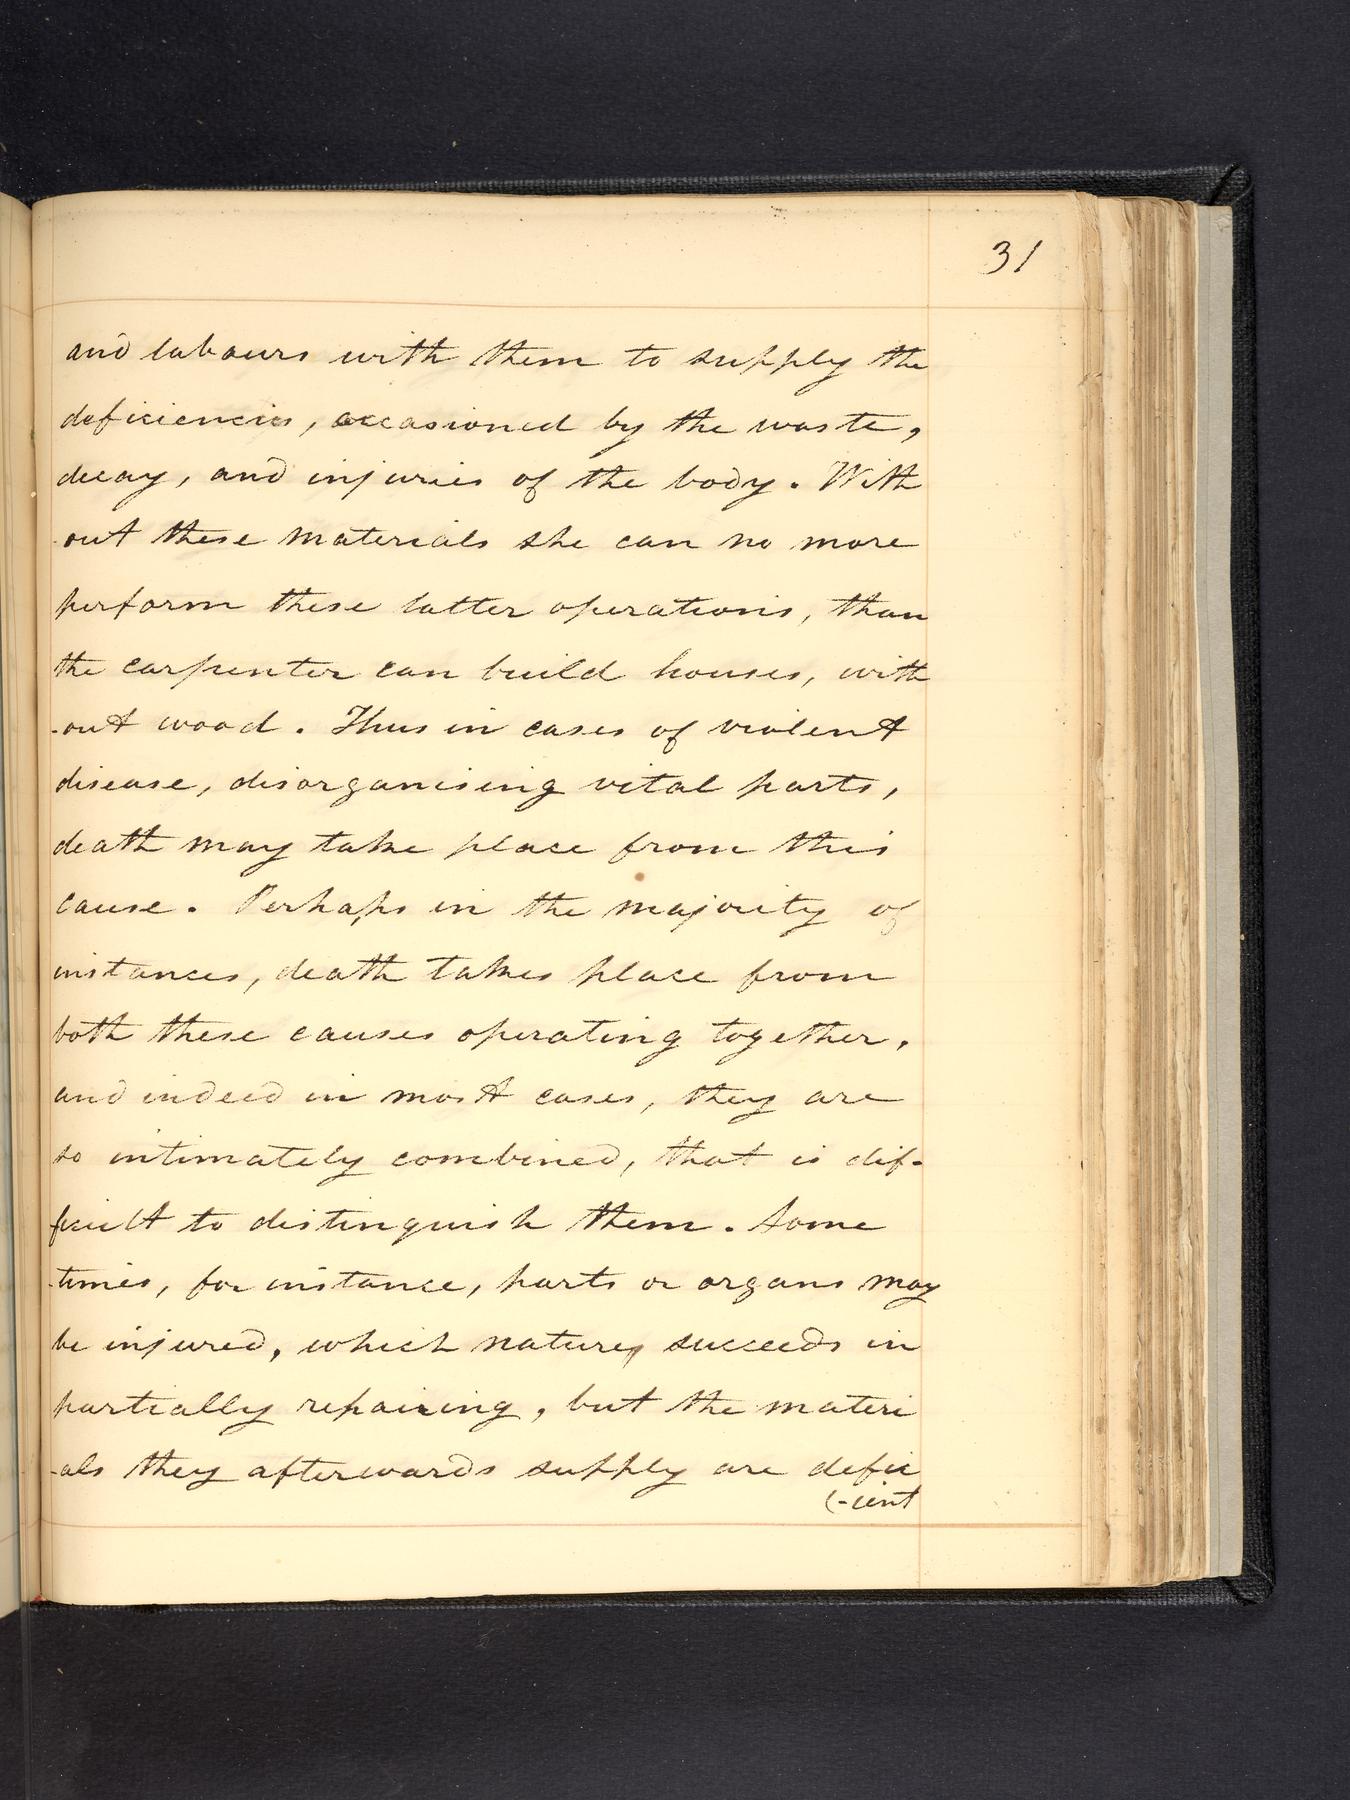 31
and labours with them to supply the
deficiencies, occasioned by the waste,
decay, and injuries of the body. With
-out these materials she can no more
perform these latter operations, than
the carpenter can build houses, with
-out wood. Thus in cases of violent
disease, disorganising vital parts,
death may take place from this
cause. Perhaps in the majority of
instances, death takes place from
both these causes operating together,
and indeed in most cases, they are
so intimately combined, that is dif-
ficult to distinguish them. Some
-times, for instance, parts or organs may
be injured, which nature, succeeds in
partially repairing, but the materi
-als they afterwards supply are defic
(-ient